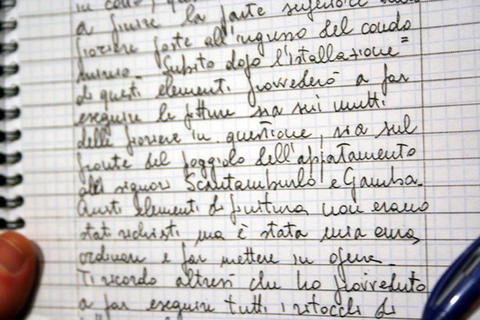 a finire la parte superiore
fioriere poste all'ingresso del condo
minio. Subito dopo l'istallazione
di questi elementi provvederò a far
eseguire le pitture sia sui muretti
delle fioriere in questione, sia sul
fronte del poggiolo dell'appartamento
dei signori Scantamburlo e Gamba.
Questi elementi di finitura, non erano
stati richiesti ma è stata mia cura,
ordinare e far mettere in opera.
Ti ricordo altresì che ho provveduto
a far eseguire tutti i ritocchi di